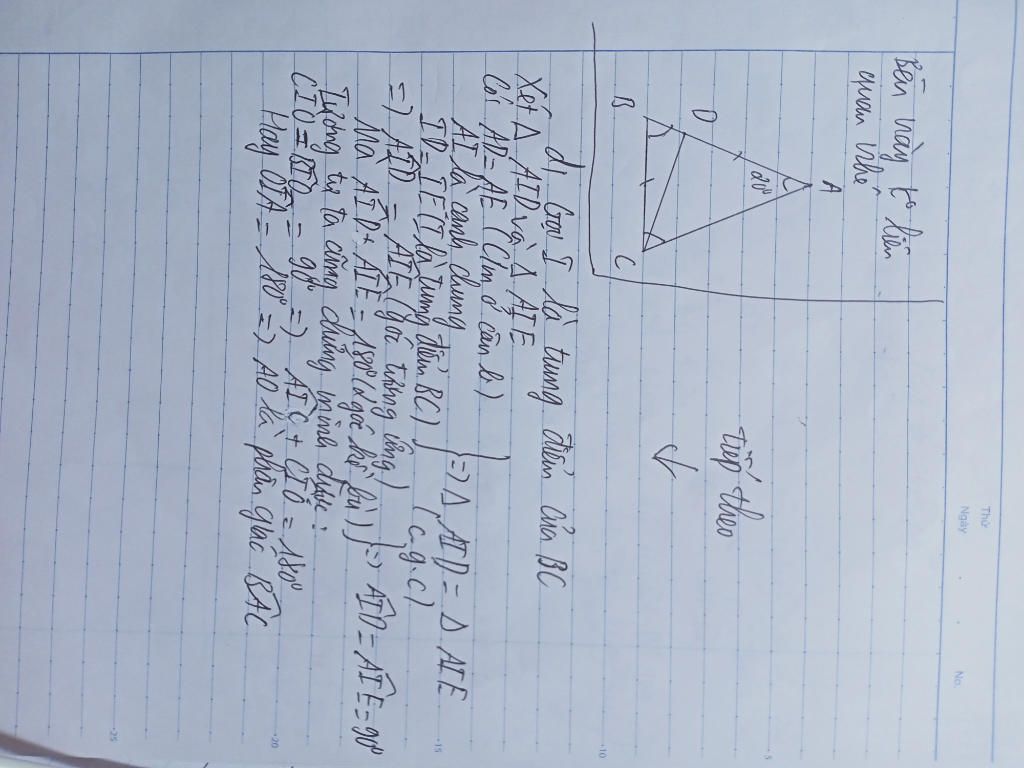 Thứ
Ngày
No.
Bên này ko liên
quan nhé
tiếp theo
A
20°
D
B
C
d) Gọi I là trung điểm của BC
Xét Δ AID và Δ AIE
Có AD = AE (C/m ở câu b)
AI là cạnh chung
ID = IE (I là trung điểm BC)
=> Δ AID = Δ AIE
(c.g.c)
=> AID = AIE (góc tương ứng)
Mà AID + AIE = 180° (2 góc kề bù) => AID = AIE = 90°
Tương tự ta cũng chứng minh được:
CIO = BIO = 90° => AIC + CIO = 180°
Hay OIA = 180° => AO là phân giác BAC
5
10
15
20
25